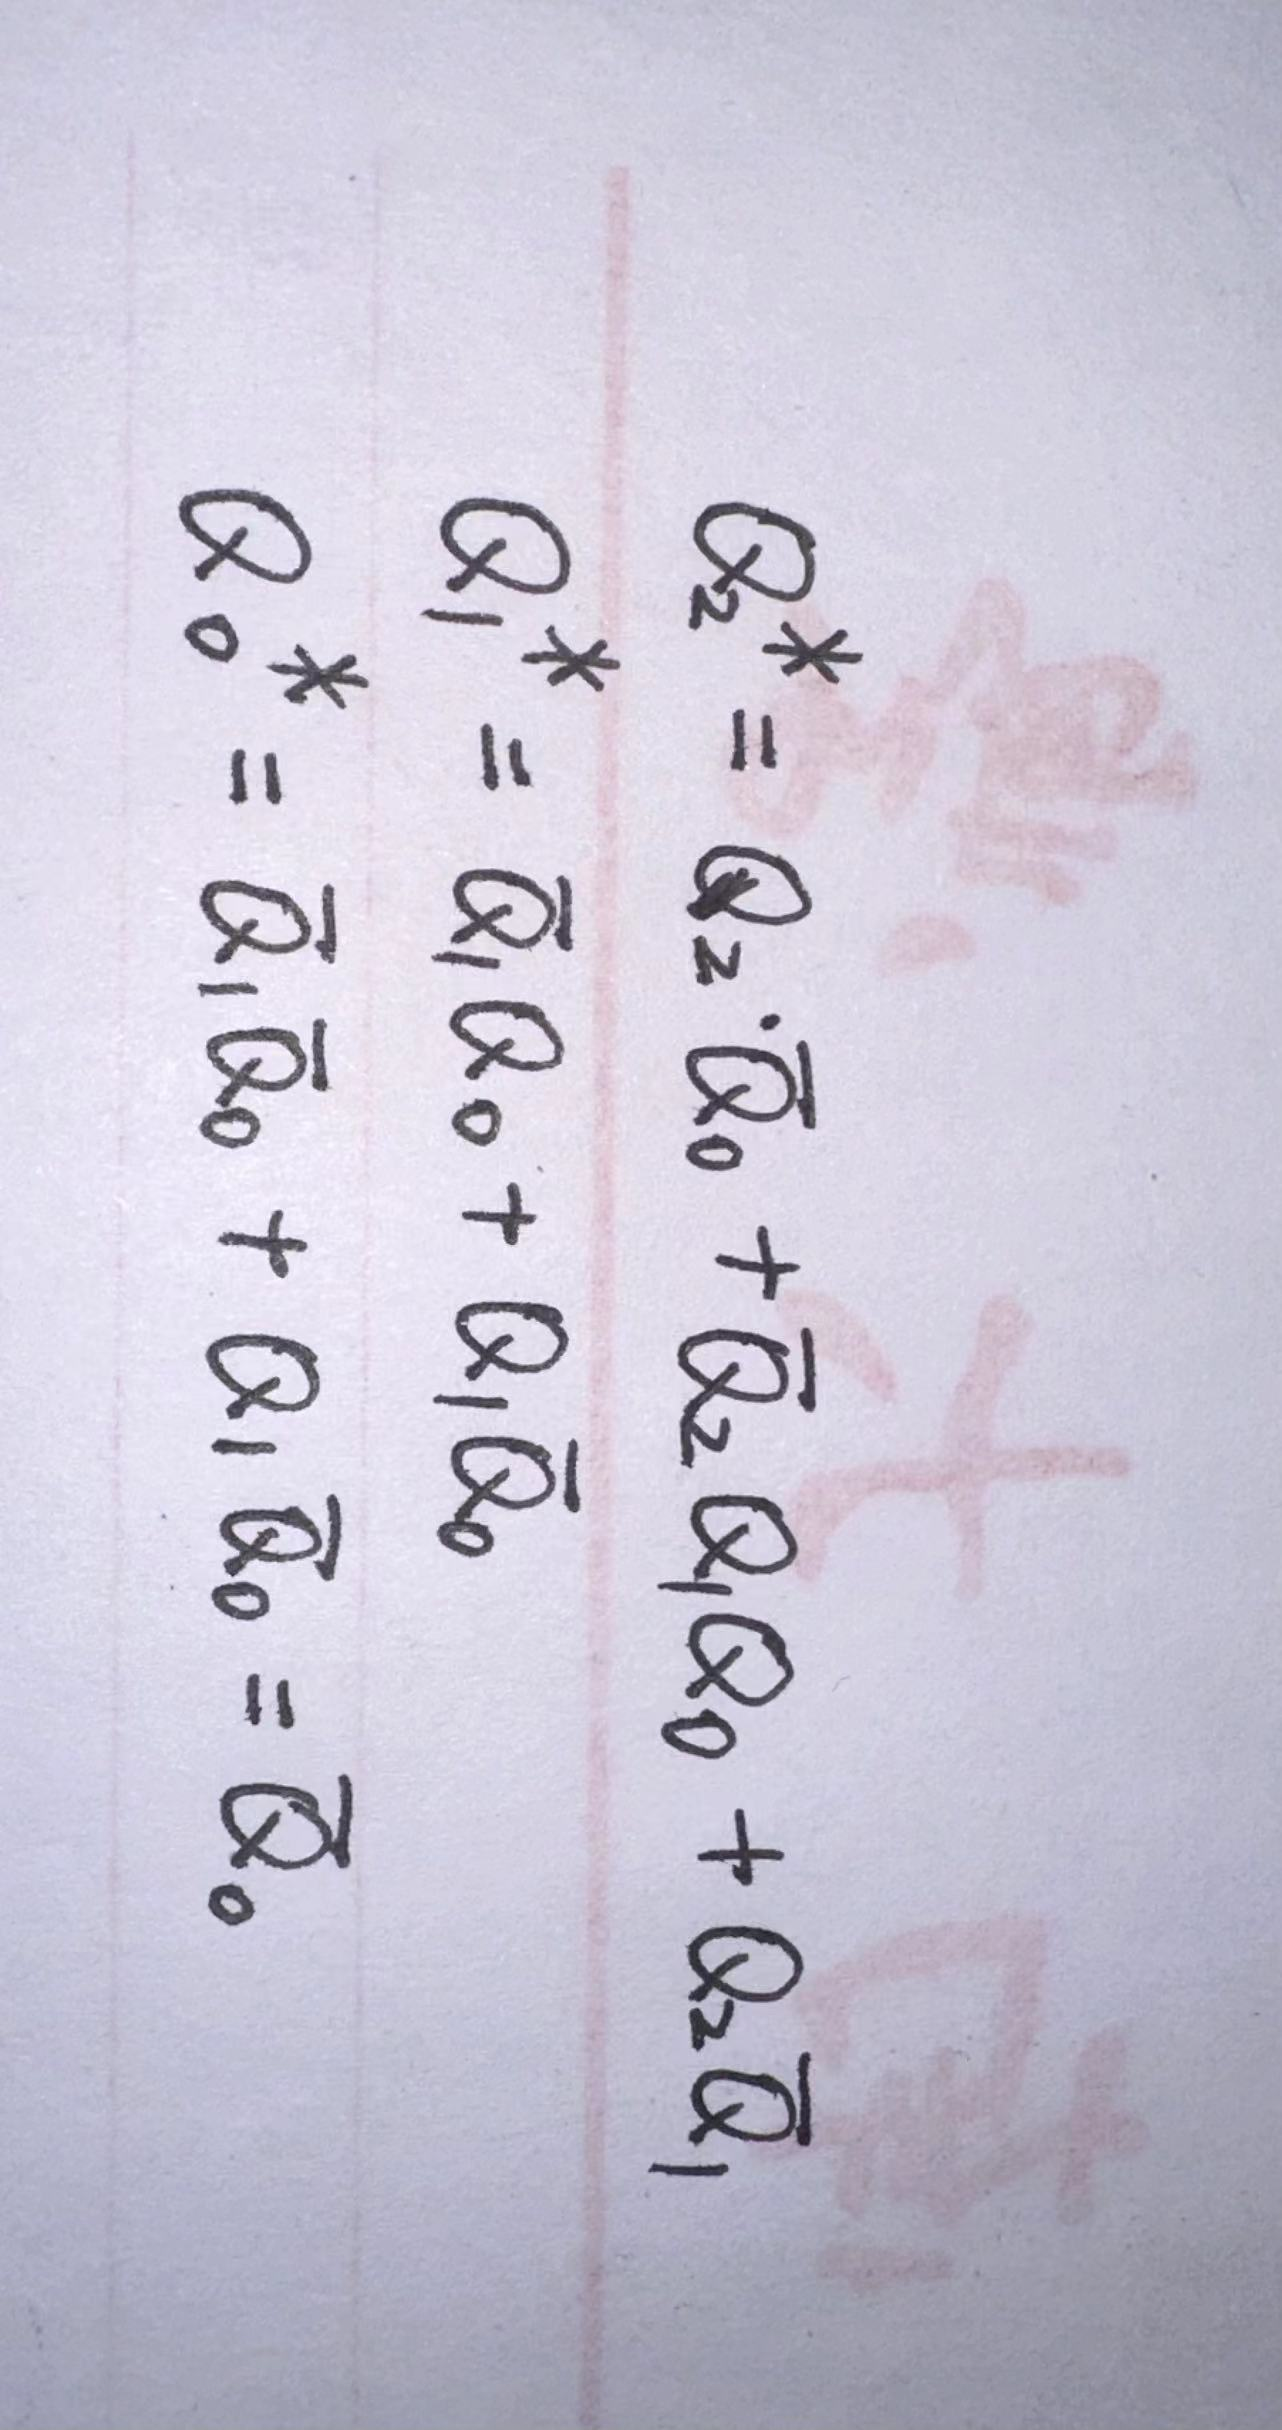 Q₂* = Q₂·Q̅₀ + Q̅₂Q₁Q₀ + Q₂Q̅₁
Q₁* = Q̅₁Q₀ + Q₁Q̅₀
Q₀* = Q̅₁Q̅₀ + Q₁Q̅₀ = Q̅₀